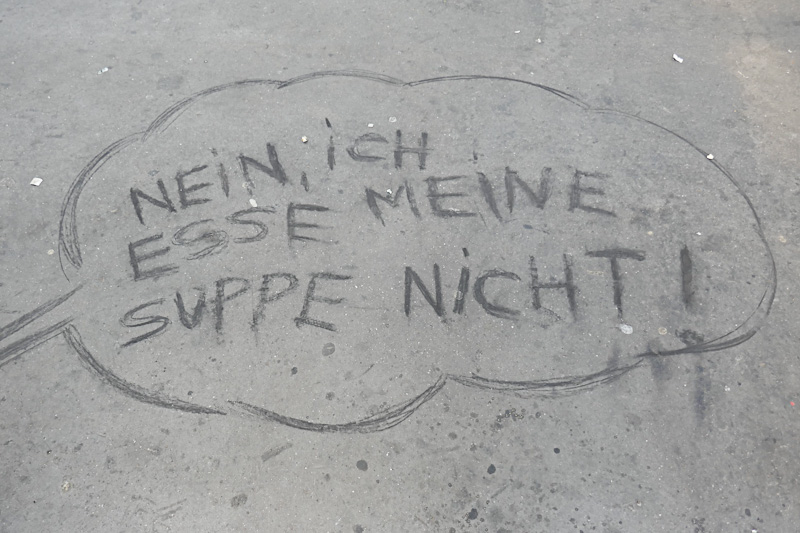 NEIN, iCH
ESSE MEINE
SUPPE NiCHT!